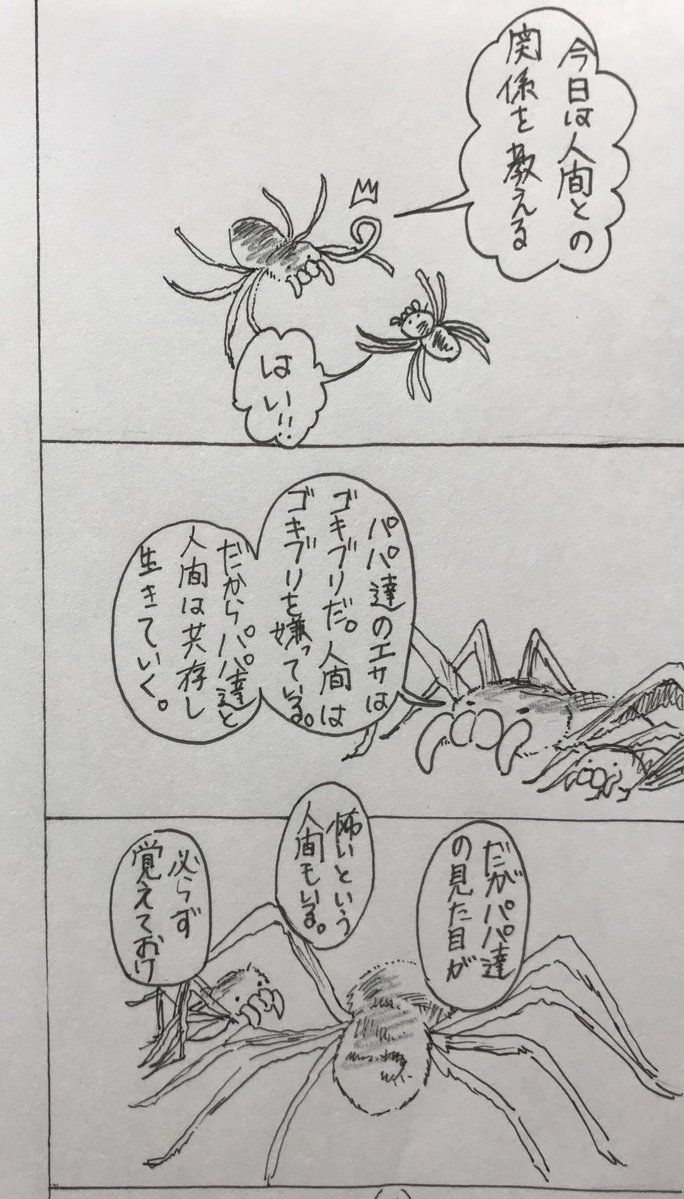 今日は人間との
関係を教える
はい!!
パパ達のエサは
ゴキブリだ。人間は
ゴキブリを嫌っている。
だからパパ達と
人間は共存し
生きていく。
だがパパ達
の見た目が
怖いという
人間もいる。
必らず
覚えておけ